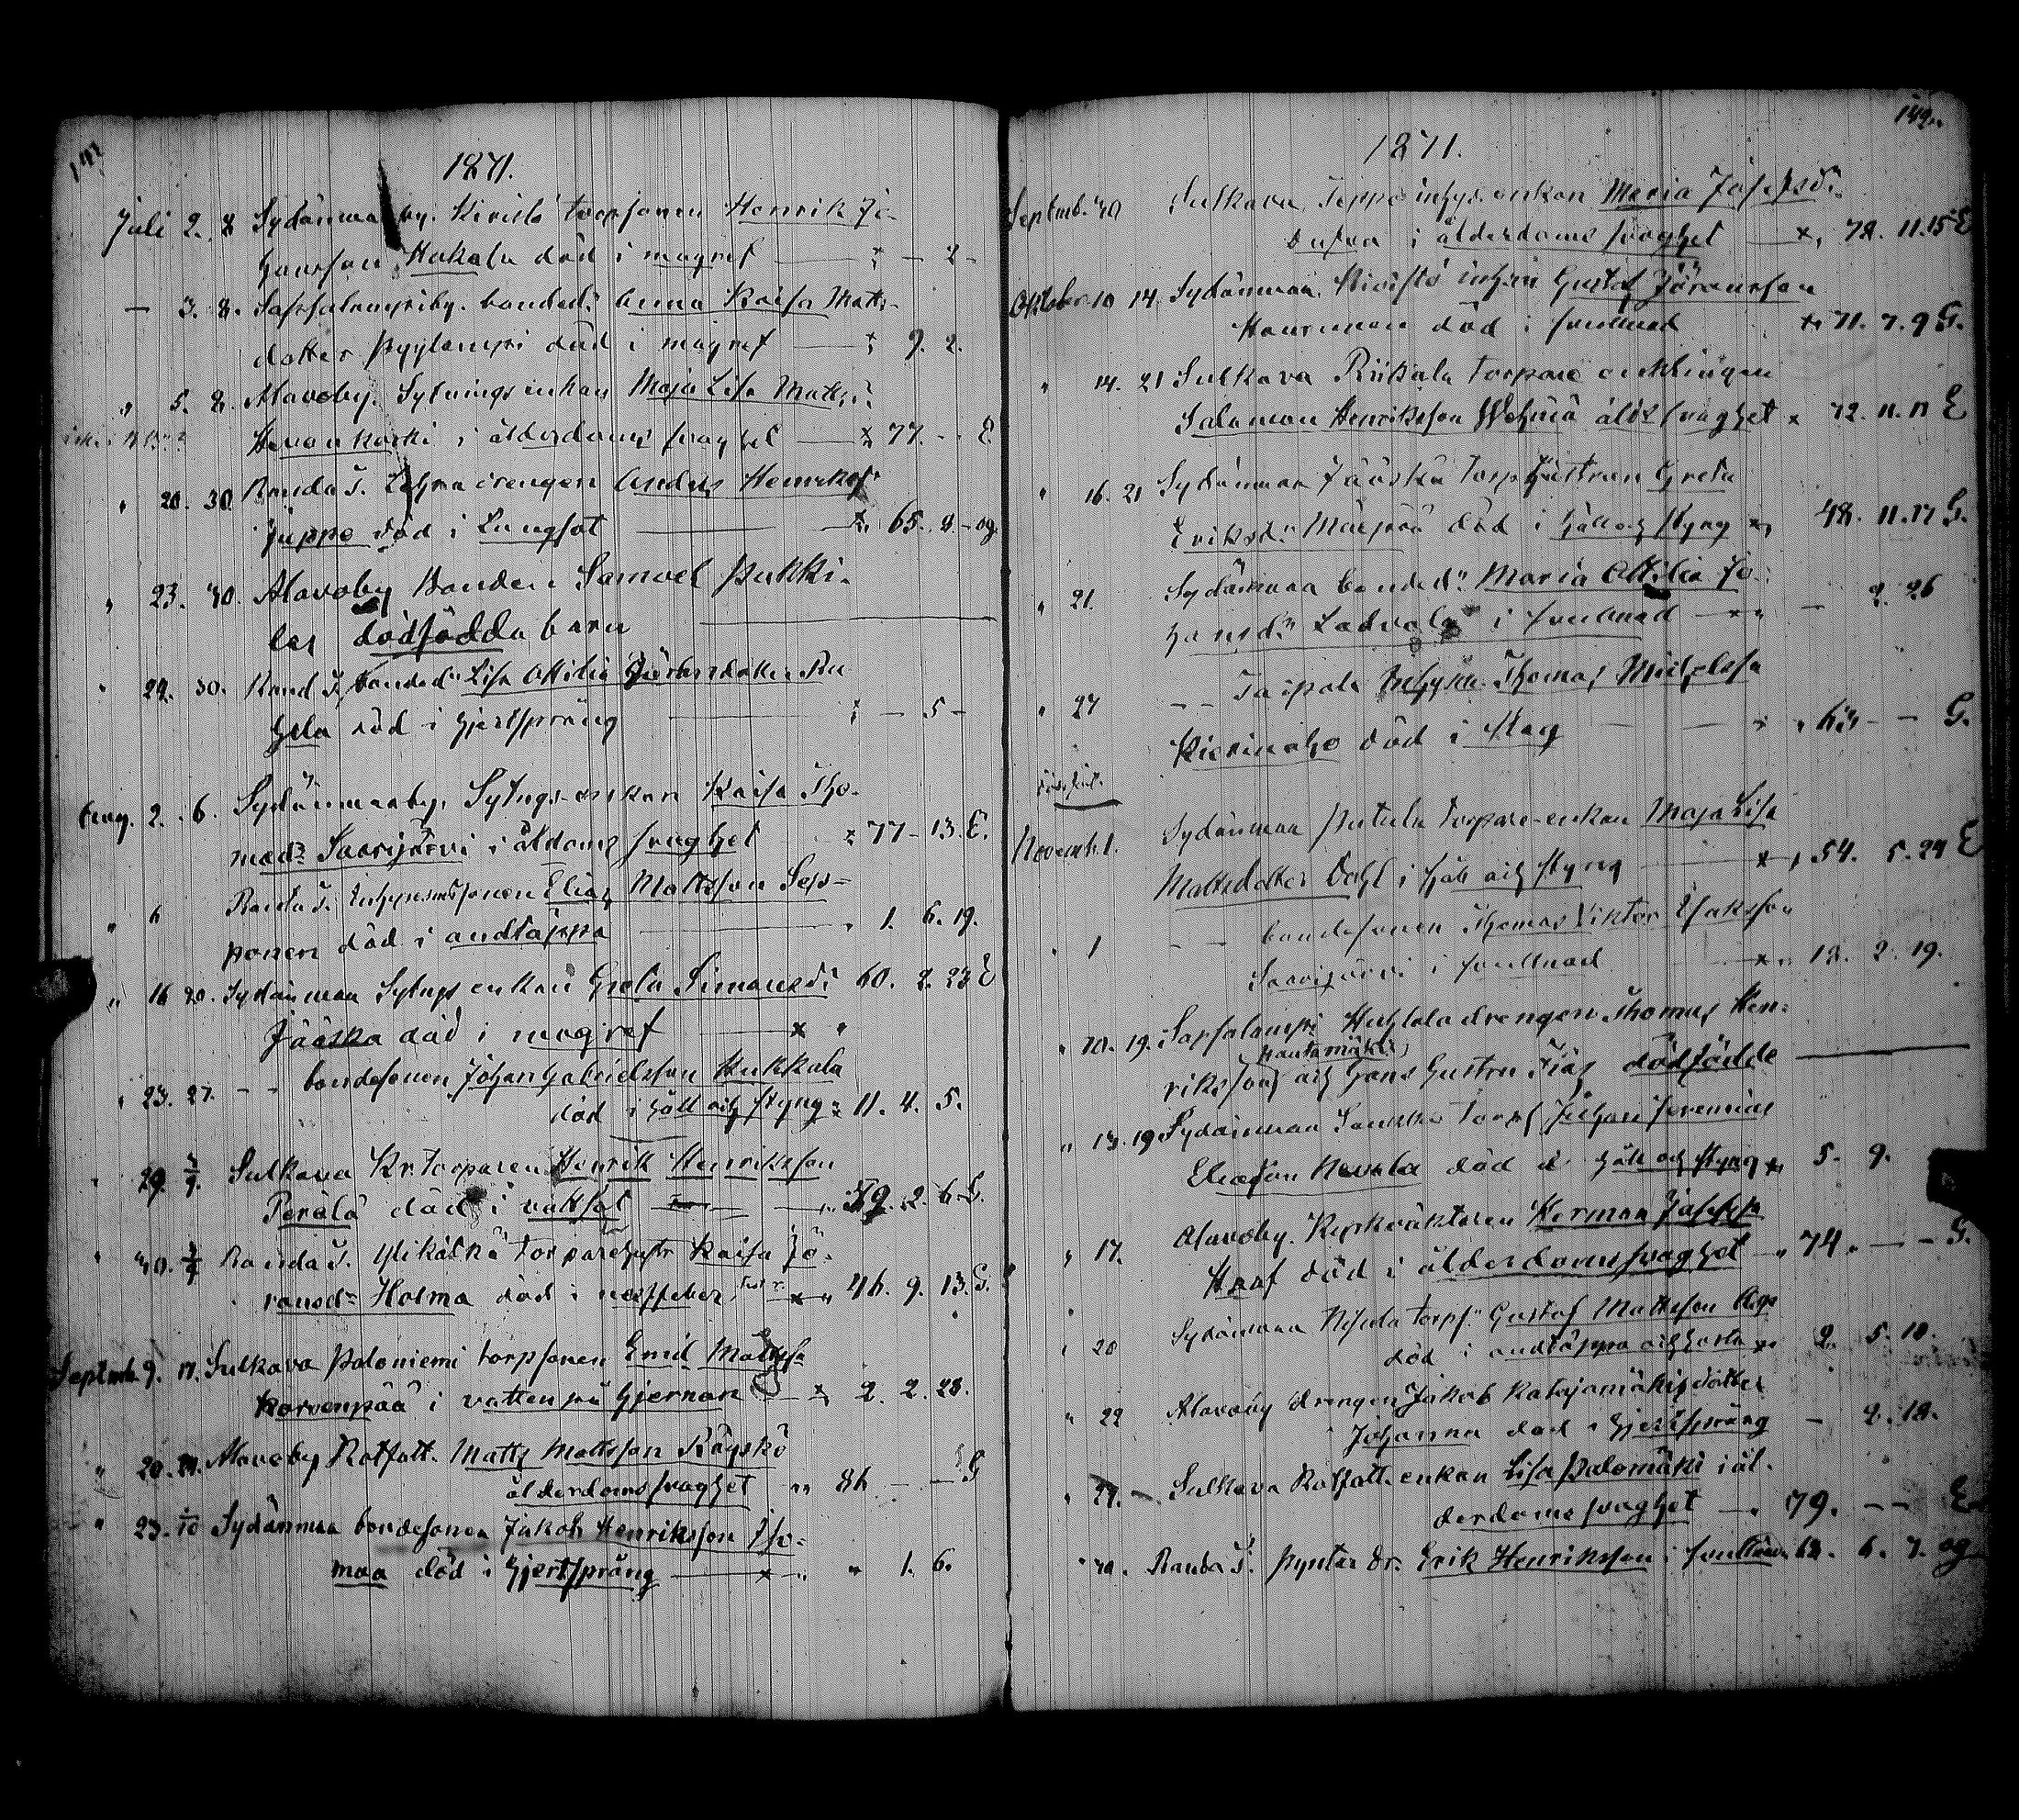 1871.
Juli 2. 8 Sydänmaaby. Kivistö torpsonen Henrik Jo-
hansson Hukala död i magref — 2 -
— 3. 8. Sapsalampiby. bonded: Anna Kaisa Matts-
dotter Pyylampi död i magref 9. 2.
" 5. 8. Alavoby. Sytnings enkan Maja Lisa Matts:
Hevankoski i ålderdoms svaghet 77. - - E
" 20. 30 Randa T. drengen Anders Henriks:
Juppo död i Lungsot 65. 8. - og
" 23. 30. Alavoby Bonden Samuel Pukki-
las dödfödda barn
" 24. 30. Rand T. bonded: Lisa Ottilia
död i hjertsprång — 5 -
Aug. 2. 6. Sydänmaaby. Sytngs-enkan Kaisa Tho-
masd: Saarijärvi i åldoms svaghet 77 - 13. E.
" 6 Randa T. sonen Elias Mattsson Sep-
ponen död i andtäppa 1. 6. 19.
" 16 20. Sydänmaa Sytngs enkan Greta Simonsd: 60. 2. 23 E
Jääskä död i magref
" 23. 27. - - bondesonen Johan Gabrielsson Hukkala
död i håll och styng 11. 4. 5.
" 29. 3/9. Sulkava Kr. torparen Henrik Henriksson
Perälä död i vattsot 59. 2. 6 G.
" 30. 3/9 Randa T. Ylikätkä torparehustr Kaisa Jö-
ransd: Holma död i 46. 9. 13 G.
Septmb. 9. 17. Sulkava Paloniemi torpsonen Emil Mattss:
Korvenpää i vatten på hjernan 2. 2. 28.
" 20. 24. Alavoby Rotfatt. Matts Mattsson Räyskö
ålderdomssvaghet " 86 — — G
" 23. 1/10 Sydänmaa bondesonen Jakob Henriksson Iso-
maa död i hjertsprång " 1. 6.
1871.
Septmb. 30 Sulkava, Seppo inhys. enkan Maria Josefsd:
Dufva i ålderdoms svaghet 72. 11. 15 E
Oktober 10 14. Sydänmaa. Kivistö inhysn Gustaf Jöransson
Haurunen död i svullnad 71. 7. 9 G.
" 14. 21 Sulkava Riikala torpare enklingen
Salomon Henriksson Wehmä åld: svaghet 72. 11. 11 E
" 16. 21 Sydänmaa Jääskä torp hustrun Greta
Eriksd: Mäepää död i håll och styng 48. 11. 17 G.
" 21. Sydänmaa bonded: Maria Ottilia Jo-
hansd: Ladvala i svullnad — 2. 26
" 27 - - Taipale Inhysn. Thomas Michelss:
Kiviniaho död i slag 63 - - G.
Novemb. 1. Sydänmaa torpare-enkan Maja Lisa
Mattsdotter Dahl i håll och styng 54. 5. 24 E
" 1 - - bondesonen Thomas Viktor Isaksson
Saarijärvi i svullnad 13. 2. 19.
" 10. 19. Sapsalampi Huhtala drengen Thomas Hen-
riksson Hautamäki och hans hustru dödfödde
" 13. 19 Sydänmaa torps Johan Jeremias
Eliasson Nevala död i håll och styng 5. 9.
" 17. Alavoby. Kyrkväktaren Herman Josefss:
Haaf död i ålderdomssvaghet 74. — - G.
" 20 Sydänmaa torps: Gustaf Mattsson
död i andtäppa och hosta 2. 5. 10.
" 22 Alavoby drengen Jakob Katajamäkis dotter
Johanna död i hjertsprång — 2. 18.
" 27. - Sulkava Rotfatt. enkan Lisa Palomäki i ål-
derdomssvaghet 79. — - E
" 30. Randa T. Pyntar dr. Erik Henriksson i svullnad 62. 6. 7. og